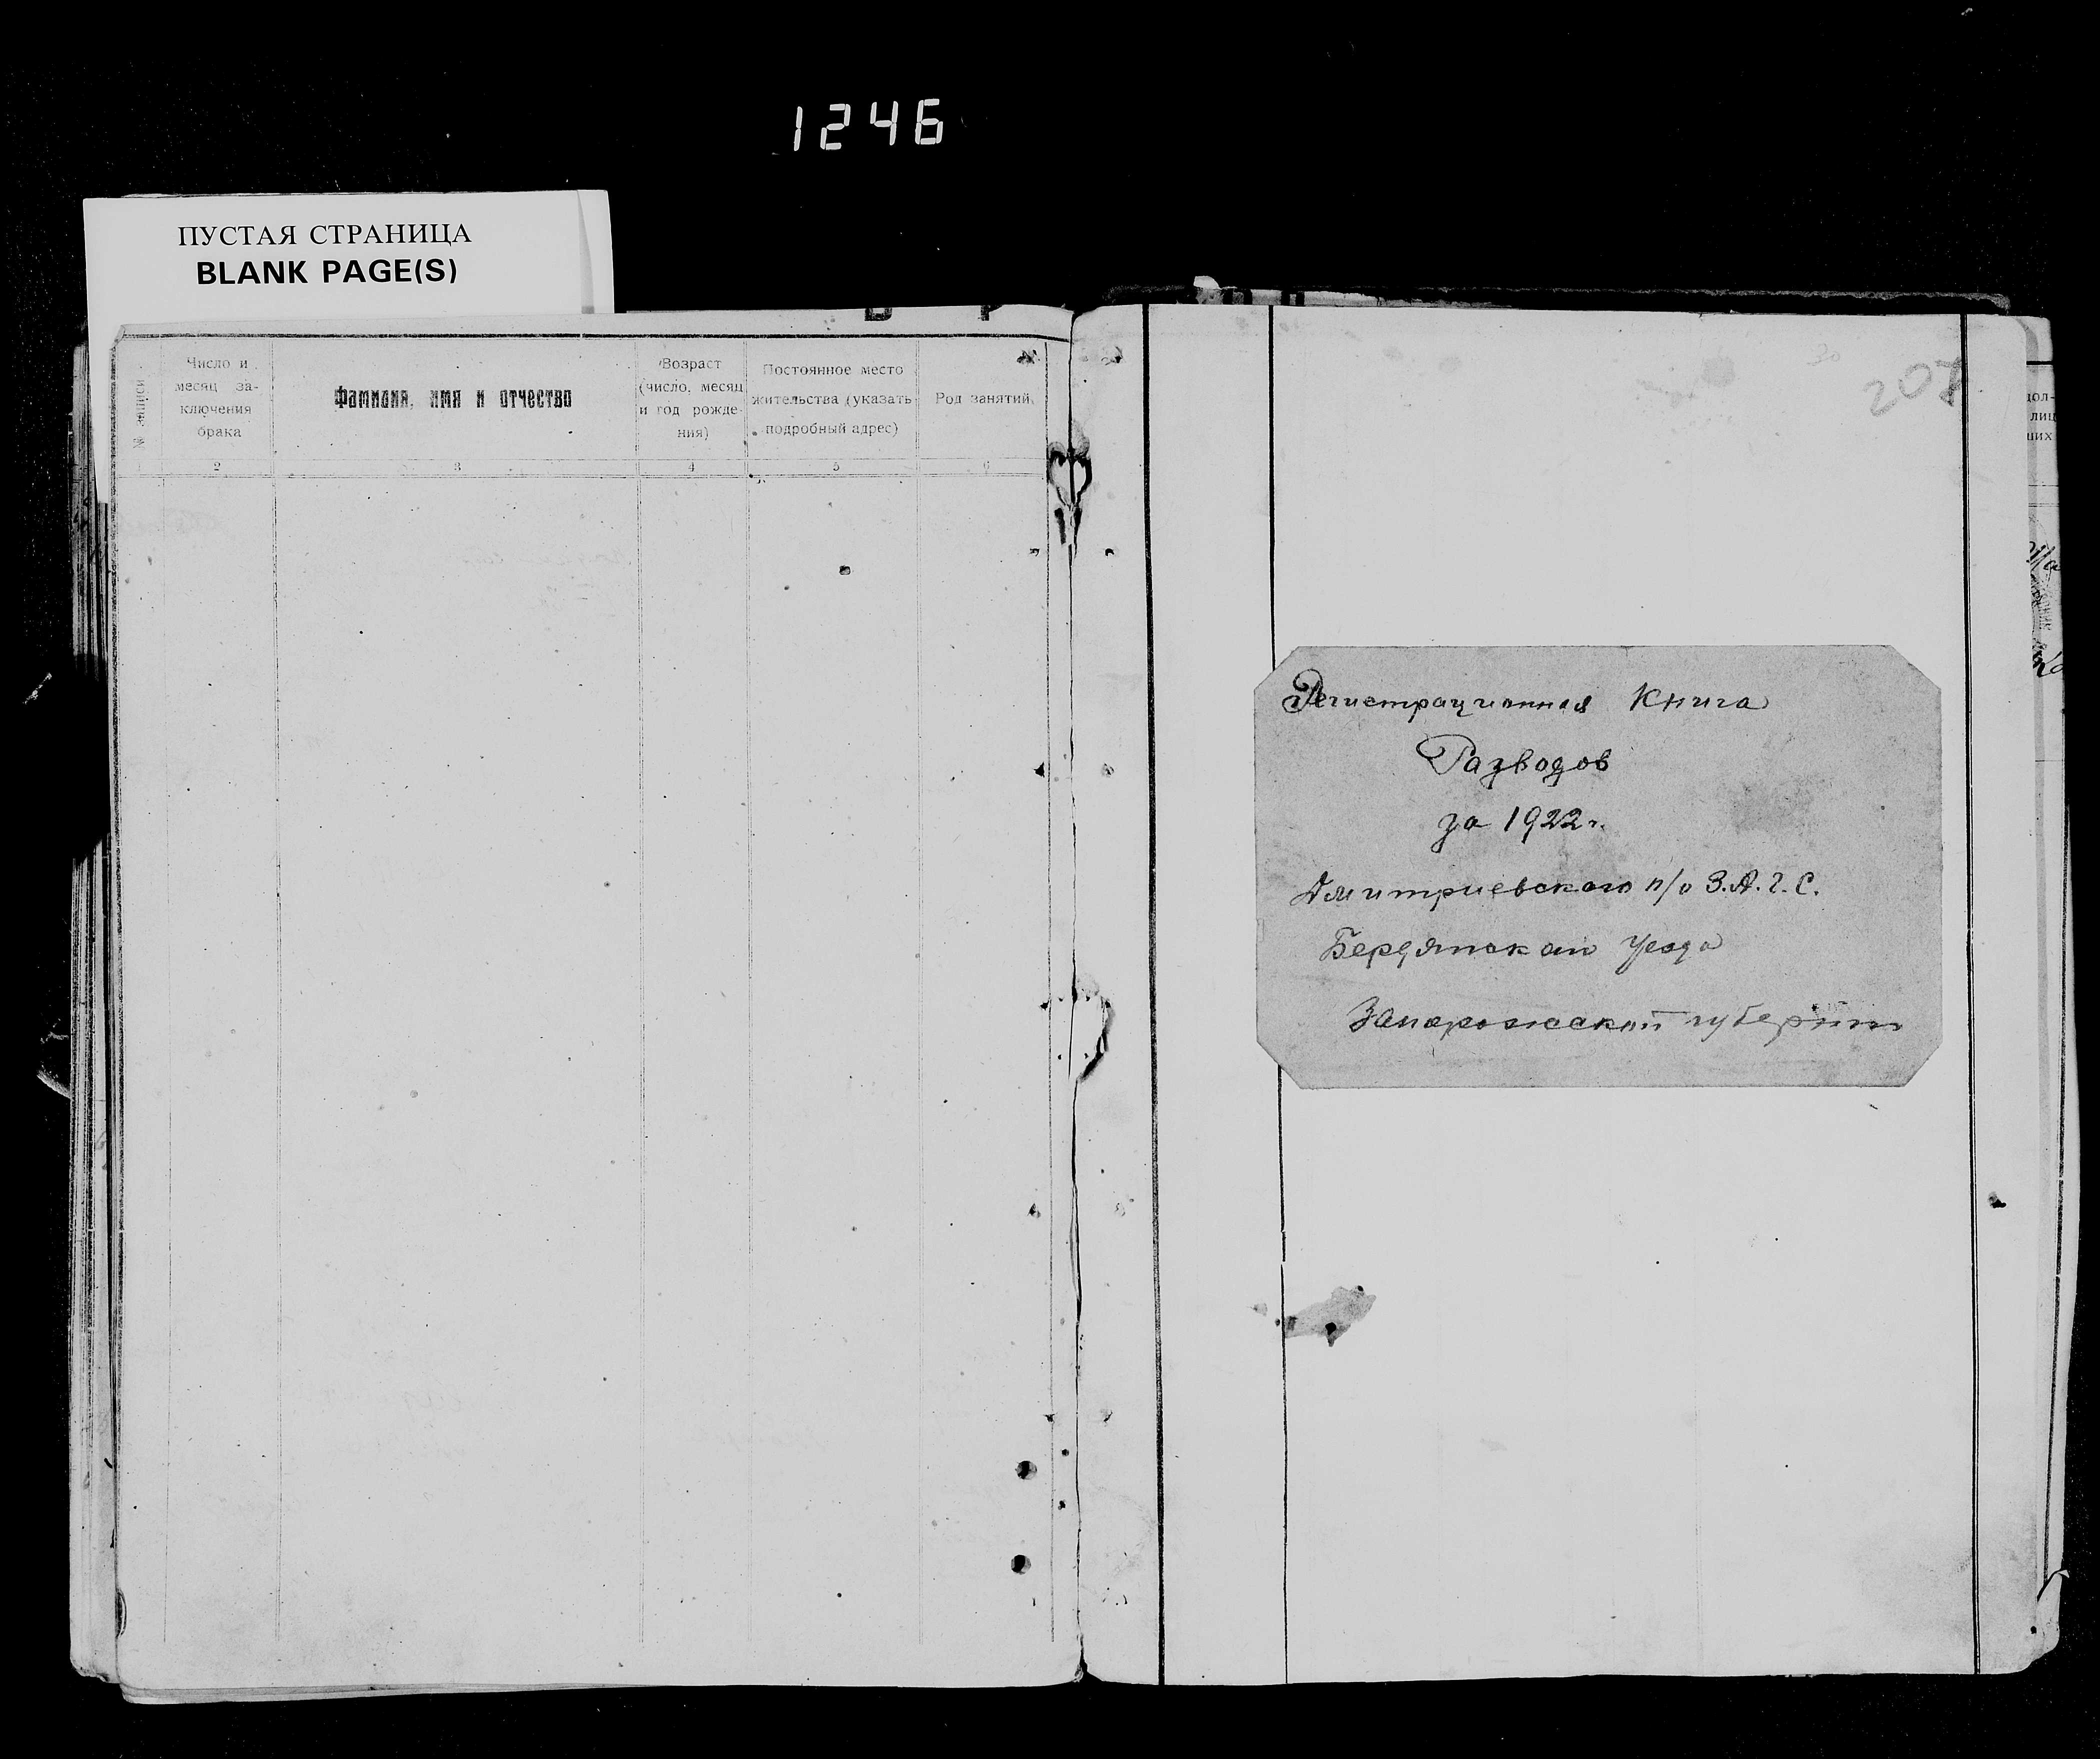 1246
ПУСТАЯ СТРАНИЦА
BLANK PAGE(S)
№ записи
Число и
месяц за-
ключения
брака
Фамилия, имя и отчество
Возраст
(число, месяц
и год рожде-
ния)
Постоянное место
жительства (указать
подробный адрес)
Род занятий
2 3 4 5 6
30
207
Регистрационная Книга
Разводов
за 1922 г.
Дмитриевского п/о З.А.Г.С.
Бердянского Уезда
Запорожской губернии